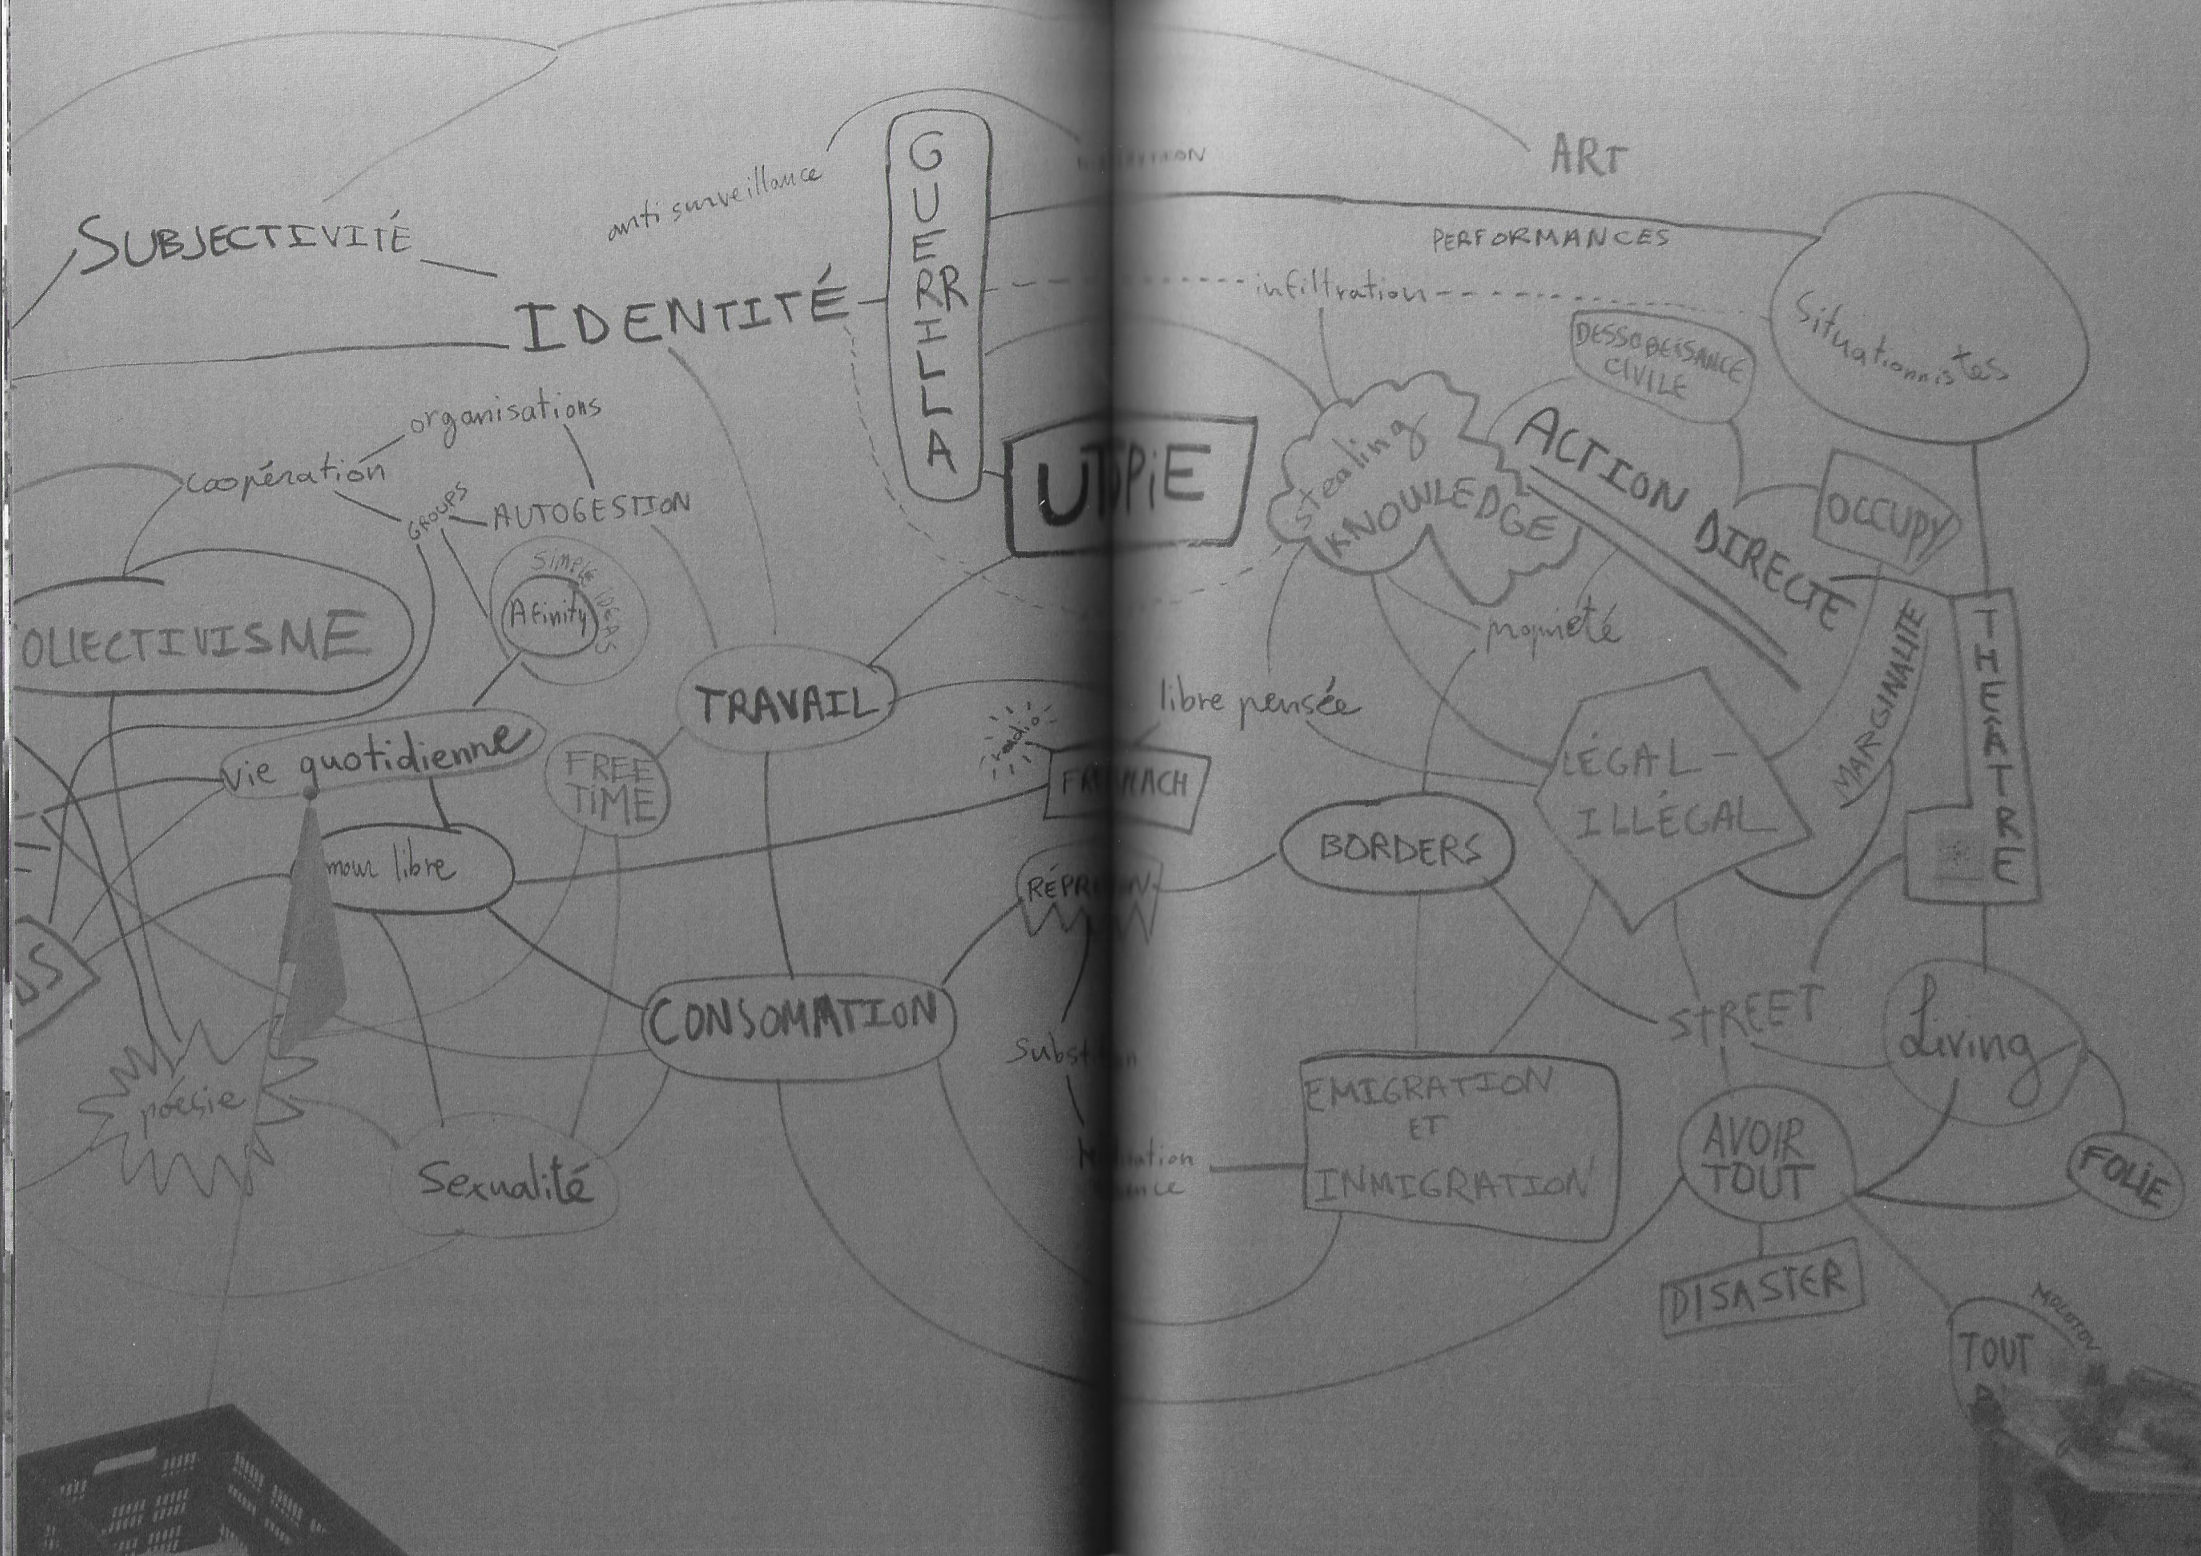 ART
SUBJECTIVITÉ
anti surveillance
GUERRILLA
PERFORMANCES
IDENTITÉ
infiltration
Situationnistes
DESSOBEISANCE
CIVILE
organisations
coopération
GROUPS
AUTOGESTION
UTOPiE
stealing
KNOWLEDGE
ACTION DIRECTE
OCCUPY
SIMPLE IDEAS
Afinity
OLLECTIVISME
propriété
MARGINALITE
TRAVAIL
libre pensée
radio
vie quotidienne
FREE
TIME
LÉGAL -
ILLÉGAL
mour libre
BORDERS
CONSOMMATION
STREET
Living
poésie
Sexualité
EMIGRATION
ET
INMIGRATION
AVOIR
TOUT
FOLIE
DISASTER
MOLOTOV
TOUT